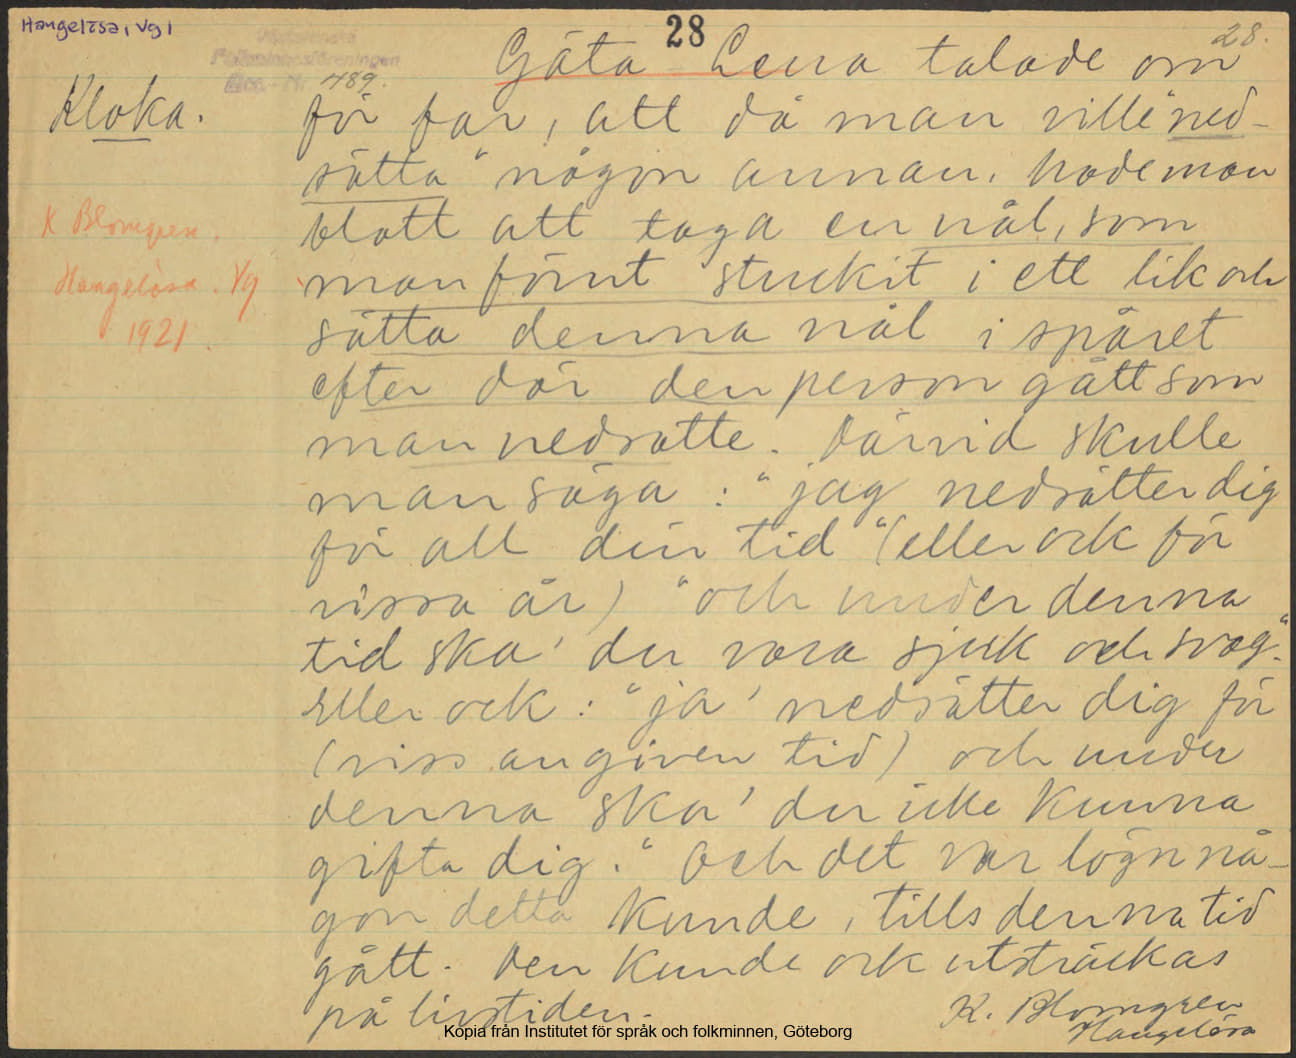 Hangelösa, Vg1
28
28.
Västsvenska
Folkminnesföreningen
Acc.-Nr 489.
Kloka.
K Blomgren.
Hangelösa. Vg
1921.
Gäta Lena talade om
för far, att då man ville "ned-
sätta" någon annan, hade man
blott att taga en nål, som
man förut stuckit i ett lik och
sätta denna nål i spåret
efter där den person gått som
man nedsatte. Därvid skulle
man säga: "jag nedsätter dig
för all din tid" (eller ock för
vissa år) "och under denna
tid ska' du vara sjuk och svag."
Eller ock: "ja' nedsätter dig för
(viss angiven tid) och under
denna ska' du icke kunna
gifta dig." Och det var lögn nå-
gon detta kunde, tills denna tid
gått. Den kunde ock utsträckas
på livstiden.
K. Blomgren
Hangelösa
Kopia från Institutet för språk och folkminnen, Göteborg